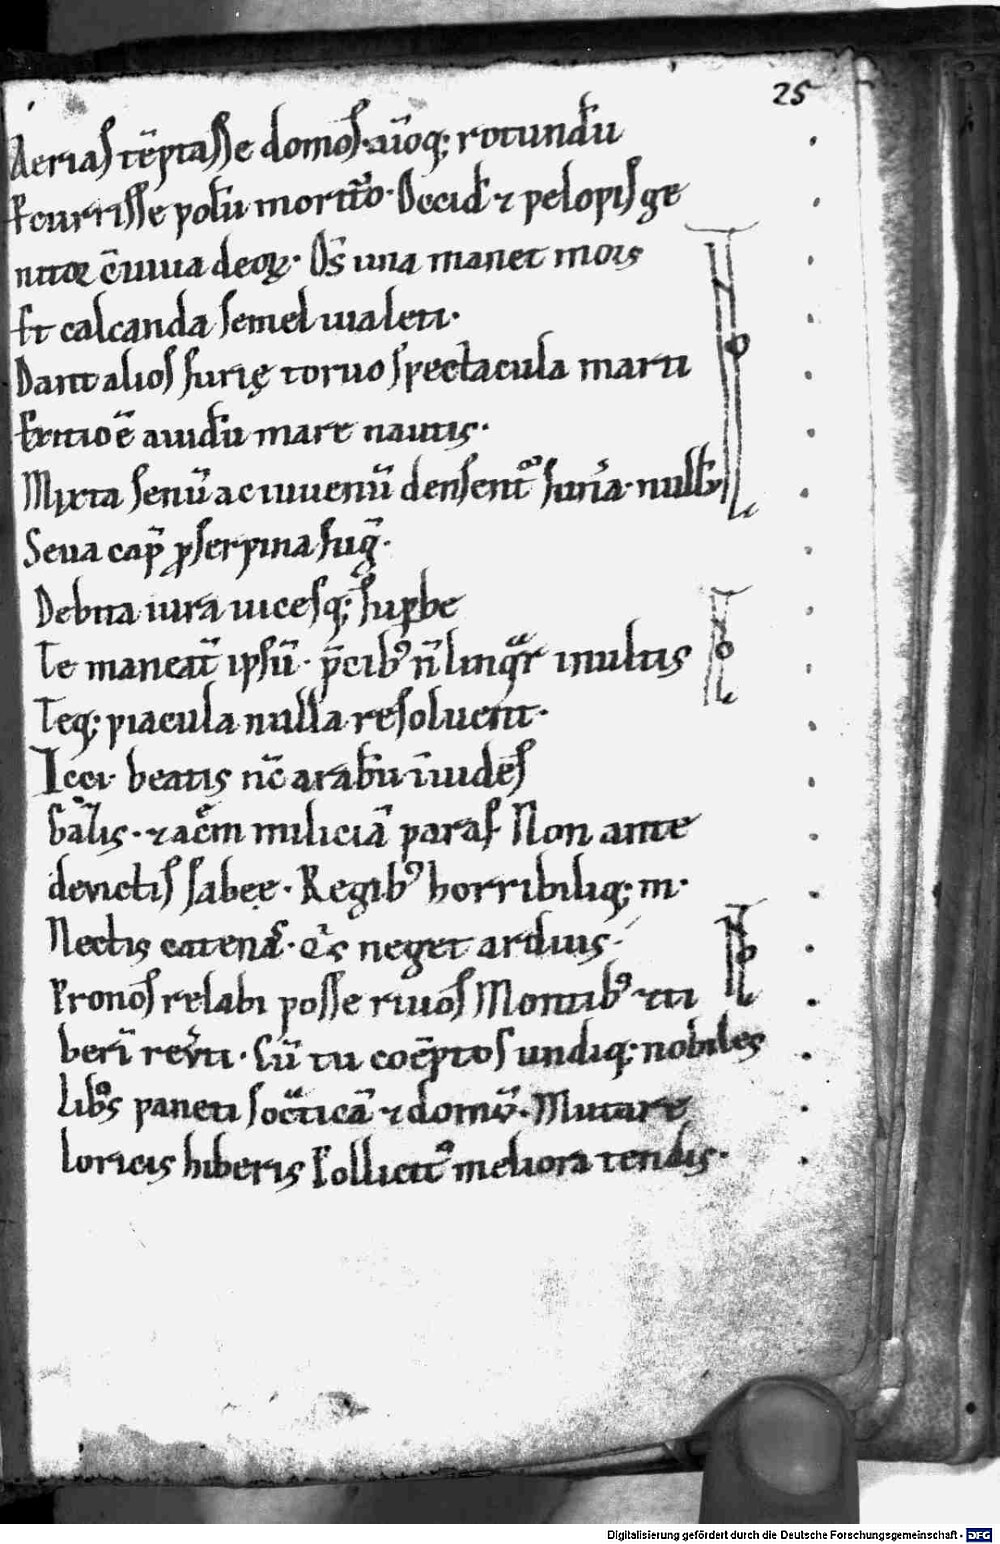 25
Aerias tēptasse domos aīoq; rotundū
Pcurrisse polū moriťo. Occid & pelopis ge
nitor c̄uiua deoꝝ. Om̄s una manet mors
Et calcanda semel uia leti.
Dant alios furię toruo spectacula marti
Exitio ē auidū mare nautis.
Mixta senū ac iuuenū densent᷑ funa nullū
Seua cap̄ ꝓserpina fuḡ.
Debita iura uicesq; supbe
Te maneāt ipsū. p̄cibꝰ n̄ linqr inultis
Teq; piacula nulla resoluent.
Icci beatis nc̄ arabū īuides
Gazis. & acrem miliciā paras Non ante
devictis sabeę. Regibꝰ horribiliq; m.
Nectis catenas. Qis neget arduis
Pronos relabi posse riuos Montibꝰ & ti
berī reuti. Cū tu coēptos undiq; nobiles
Libros paneti socticā & domū. Mutare
loricis hiberis Pollicitꝰ meliora tendis.
Digitalisierung gefördert durch die Deutsche Forschungsgemeinschaft - DFG